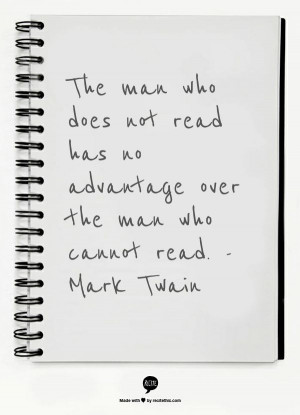 The man who
does not read
has no
advantage over
the man who
cannot read. -
Mark Twain
Made with ♥ by recitethis.com